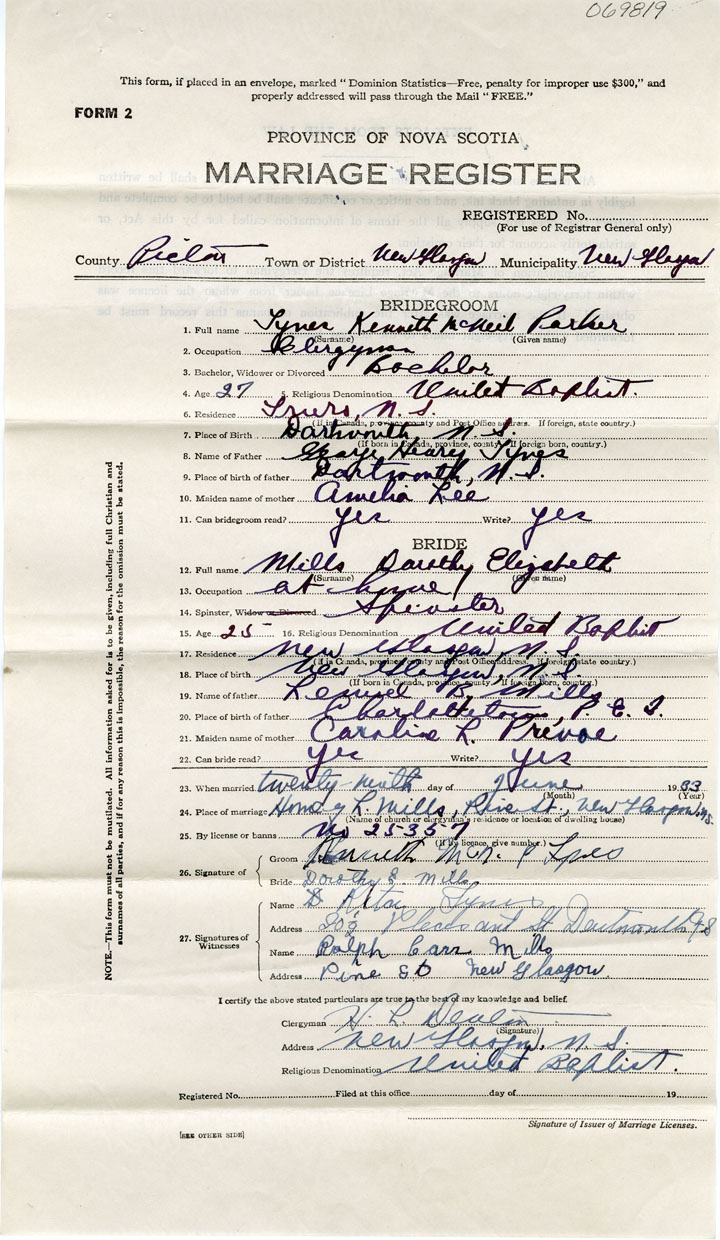 069819
This form, if placed in an envelope, marked "Dominion Statistics—Free, penalty for improper use $300," and
properly addressed will pass through the Mail "FREE."
FORM 2
PROVINCE OF NOVA SCOTIA
MARRIAGE REGISTER
REGISTERED No.
(For use of Registrar General only)
County Pictou Town or District New Glasgow Municipality New Glasgow
BRIDEGROOM
1. Full name Tynes Kenneth McNeil Parker
(Surname) (Given name)
2. Occupation Clergyman
3. Bachelor, Widower or Divorced Bachelor
4. Age 27 5. Religious Denomination United Baptist.
6. Residence Truro, N. S.
(If in Canada, province, county and Post Office address. If foreign, state country.)
7. Place of Birth Dartmouth, N. S.
(If born in Canada, province, county. If foreign born, country.)
8. Name of Father George Henry Tynes
9. Place of birth of father Dartmouth, N. S.
10. Maiden name of mother Amelia Lee
11. Can bridegroom read? Yes Write? Yes
BRIDE
12. Full name Mills Dorothy Elizabeth
(Surname) (Given name)
13. Occupation at home
14. Spinster, Widow or Divorced Spinster
15. Age 25 16. Religious Denomination United Baptist
17. Residence New Glasgow, N. S.
(If in Canada, province, county and Post Office address. If foreign, state country.)
18. Place of birth New Glasgow, N. S.
(If born in Canada, province, county. If foreign born, country.)
19. Name of father R. Mills
20. Place of birth of father Charlottetown, P. E. I.
21. Maiden name of mother Caroline L. Prevoe
22. Can bride read? Yes Write? Yes
23. When married twenty-ninth day of June 1933
(Month) (Year)
24. Place of marriage Home of L. Mills, Pine St., New Glasgow, N.S.
(Name of church or clergyman's residence or location of dwelling house)
25. By license or banns No 25357
(If by licence, give number.)
26. Signature of
Groom Kenneth McN. P Tynes
Bride Dorothy E Mills
27. Signatures of Witnesses
Name D Rita Tynes
Address Pleasant St Dartmouth N S
Name Ralph Carr Mills
Address Pine St New Glasgow
I certify the above stated particulars are true to the best of my knowledge and belief.
Clergyman H. L. Denton
(Signature)
Address New Glasgow, N. S.
Religious Denomination United Baptist.
Registered No. Filed at this office day of 19
Signature of Issuer of Marriage Licenses.
[SEE OTHER SIDE]
NOTE.—This form must not be mutilated. All information asked for is to be given, including full Christian and
surnames of all parties, and if for any reason this is impossible, the reason for the omission must be stated.